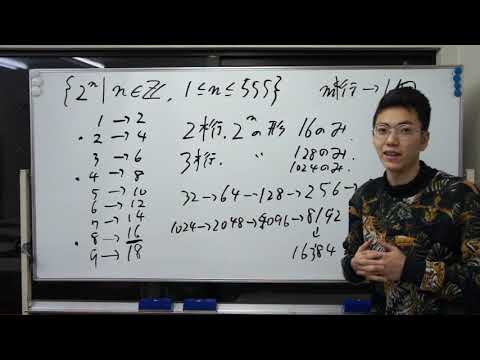 {2ⁿ | n∈ℤ, 1≤n≤555}
m桁→1個
1→2
・2→4
3→6
・4→8
5→10
6→12
7→14
・8→16
9→18
2桁. 2ⁿの形 16のみ.
3桁. 〃 128のみ.
1024のみ.
32→64→128→256→
1024→2048→4096→8192
↓
16384